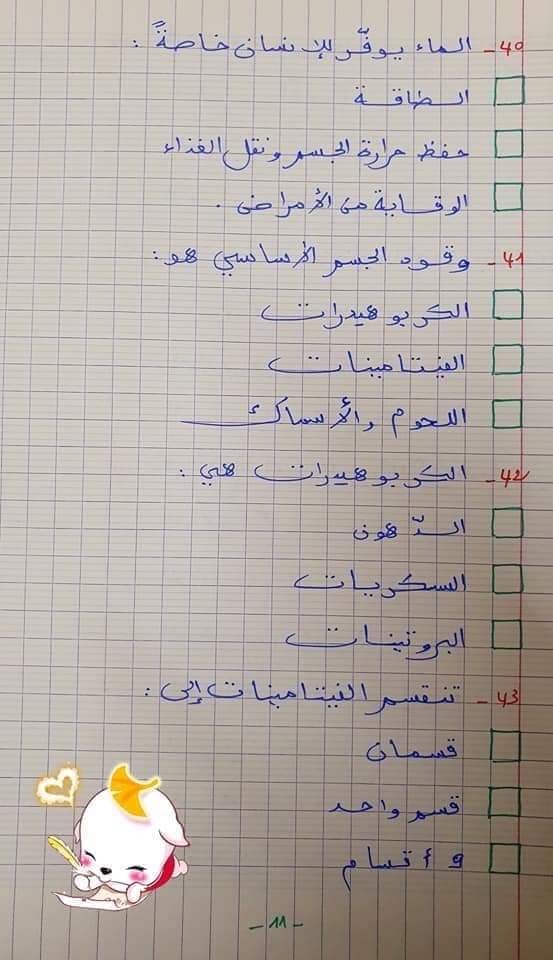 40- الماء يوفّر للإنسان خاصةً :
الطاقة
حفظ حرارة الجسم ونقل الغذاء
الوقاية من الأمراض .
41- وقود الجسم الأساسي هو :
الكربوهيدرات
الفيتامينات
اللحوم والأسماك
42- الكربوهيدرات هي :
الدّهون
السكريات
البروتينات
43- تنقسم الفيتامينات إلى :
قسمان
قسم واحد
9 أقسام
- 11 -